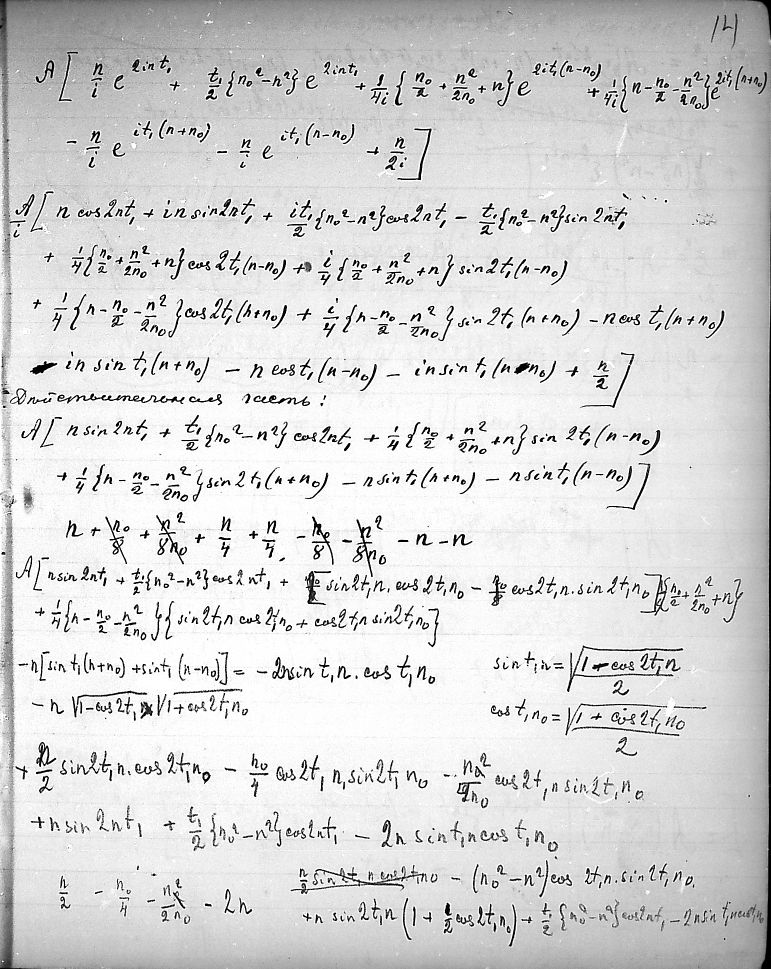 14
A [ n/i e^{2int₁} + t₁/2 {n₀²-n²} e^{2int₁} + 1/4i {n₀/2 + n²/2n₀ + n} e^{2it₁(n-n₀)} + 1/4i {n - n₀/2 - n²/2n₀} e^{2it₁(n+n₀)}
- n/i e^{it₁(n+n₀)} - n/i e^{it₁(n-n₀)} + n/2i ]
A/i [ n cos2nt₁ + in sin2nt₁ + it₁/2 {n₀²-n²} cos2nt₁ - t₁/2 {n₀²-n²} sin2nt₁
+ 1/4 {n₀/2 + n²/2n₀ + n} cos2t₁(n-n₀) + i/4 {n₀/2 + n²/2n₀ + n} sin2t₁(n-n₀)
+ 1/4 {n - n₀/2 - n²/2n₀} cos2t₁(n+n₀) + i/4 {n - n₀/2 - n²/2n₀} sin2t₁(n+n₀) - n cos t₁(n+n₀)
- in sin t₁(n+n₀) - n cos t₁(n-n₀) - in sin t₁(n-n₀) + n/2 ]
Действительная часть:
A [ n sin2nt₁ + t₁/2 {n₀²-n²} cos2nt₁ + 1/4 {n₀/2 + n²/2n₀ + n} sin 2t₁(n-n₀)
+ 1/4 {n - n₀/2 - n²/2n₀} sin2t₁(n+n₀) - n sin t₁(n+n₀) - n sin t₁(n-n₀) ]
n + n₀/8 + n²/8n₀ + n/4 + n/4 - n₀/8 - n²/8n₀ - n - n
A [ n sin2nt₁ + t₁/2 {n₀²-n²} cos2nt₁ + [ sin2t₁n. cos2t₁n₀ - cos2t₁n. sin2t₁n₀ ] {n₀/2 + n²/2n₀ + n}
+ 1/4 {n - n₀/2 - n²/2n₀} { sin2t₁n cos2t₁n₀ + cos2t₁n sin2t₁n₀ }
-n [ sin t₁(n+n₀) + sin t₁(n-n₀) ] = -2n sin t₁n . cos t₁n₀ sin t₁n = √(1-cos2t₁n)/2
-n √(1-cos2t₁n) √(1+cos2t₁n₀) cos t₁n₀ = √(1+cos2t₁n₀)/2
+ n/2 sin2t₁n. cos2t₁n₀ - n₀/4 cos2t₁n, sin2t₁n₀ - n²/2n₀ cos2t₁n sin2t₁n₀
+ n sin2nt₁ + t₁/2 {n₀²-n²} cos2nt₁ - 2n sin t₁n cos t₁n₀
n/2 - n₀/4 - n²/2n₀ - 2n n/2 sin2t₁n cos2t₁n₀ - (n₀²-n²) cos 2t₁n. sin2t₁n₀.
+n sin2t₁n (1 + 1/2 cos2t₁n₀) + t₁/2 {n₀²-n²} cos2nt₁ - 2n sin t₁n cos t₁n₀